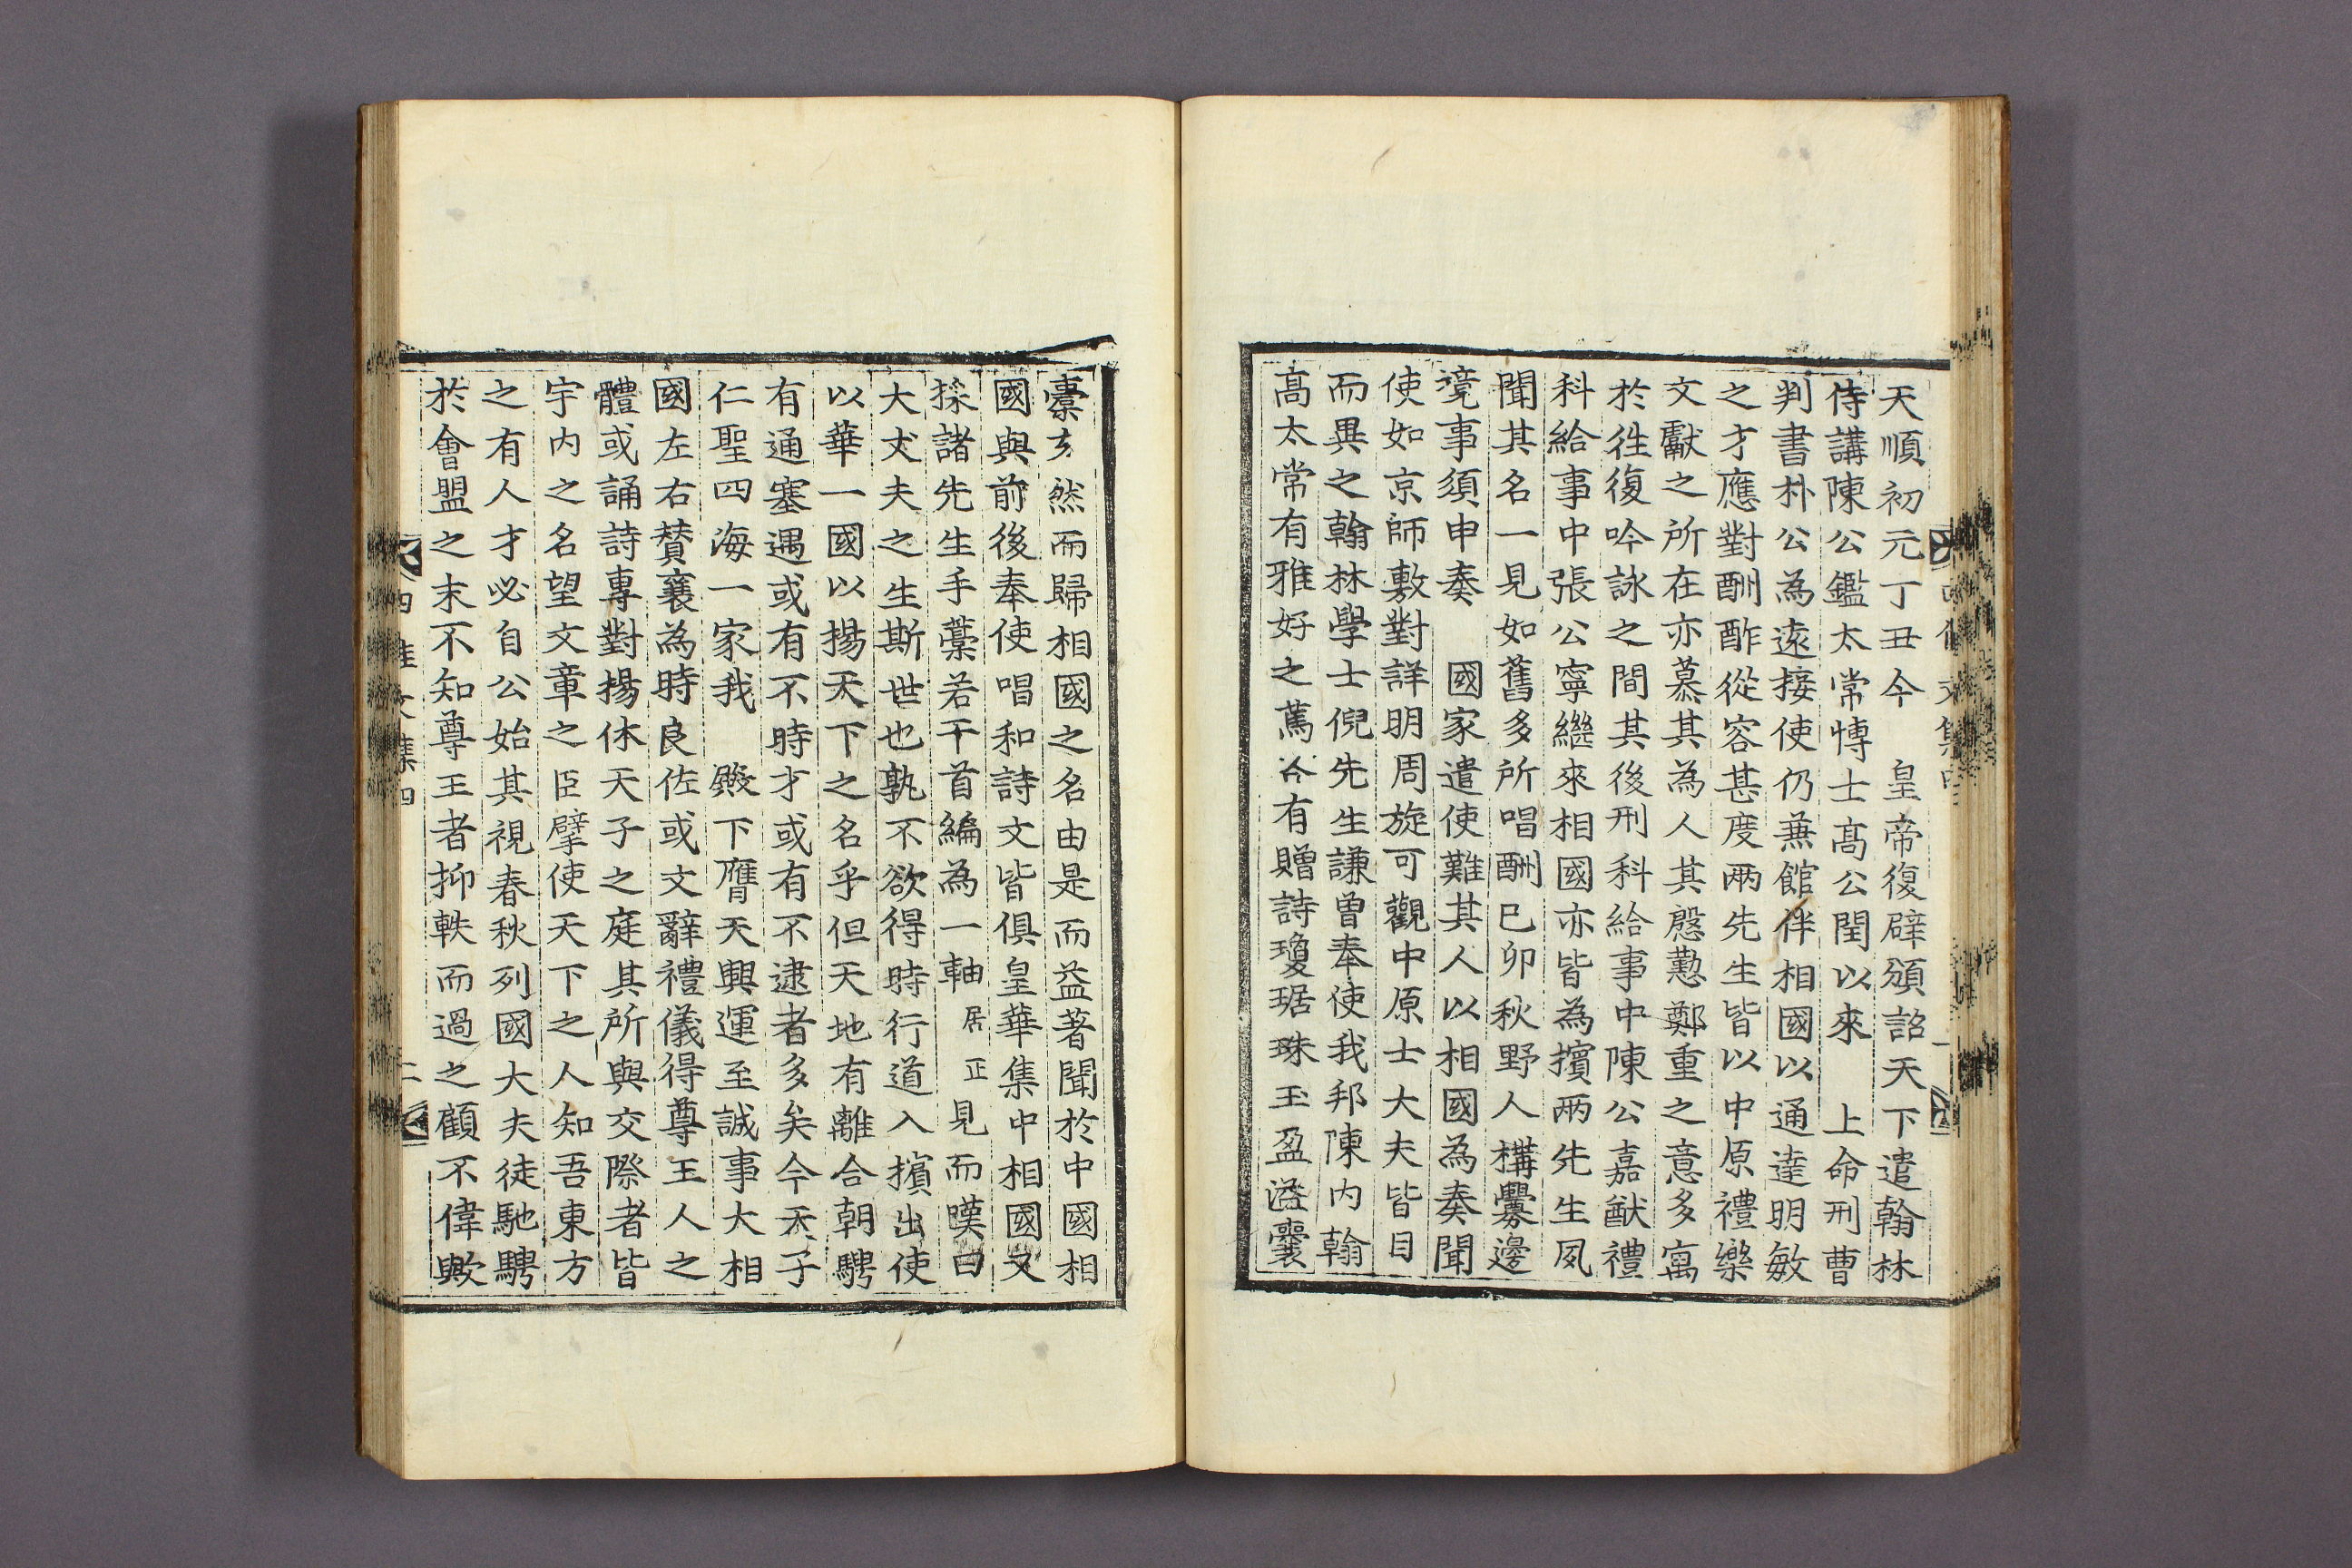 天順初元丁丑今　皇帝復辟頒詔天下遣翰林
侍講陳公鑑太常博士高公閏以來　上命刑曹
判書朴公為遠接使仍兼館伴相國以通達明敏
之才應對酬酢從容甚度兩先生皆以中原禮樂
文獻之所在亦慕其為人其慇懃鄭重之意多寓
於往復吟詠之間其後刑科給事中陳公嘉猷禮
科給事中張公寧繼來相國亦皆為擯兩先生夙
聞其名一見如舊多所唱酬己卯秋野人構釁邊
境事須申奏　國家遣使難其人以相國為奏聞
使如京師敷對詳明周旋可觀中原士大夫皆目
而異之翰林學士倪先生謙曾奉使我邦陳內翰
高太常有雅好之篤合有贈詩瓊琚珠玉盈溢囊
橐方然而歸相國之名由是而益著聞於中國相
國與前後奉使唱和詩文皆俱皇華集中相國又
採諸先生手藁若干首編為一軸居正見而嘆曰
大丈夫之生斯世也孰不欲得時行道入擯出使
以華一國以揚天下之名乎但天地有離合朝騁
有通塞遇或有不時才或有不逮者多矣今天子
仁聖四海一家我　殿下膺天興運至誠事大相
國左右賛襄為時良佐或文辭禮儀得尊王人之
體或誦詩專對揚休天子之庭其所與交際者皆
宇內之名望文章之臣擘使天下之人知吾東方
之有人才必自公始其視春秋列國大夫徒馳騁
於會盟之末不知尊王者抑軼而過之顧不偉歟
四佳文集四
二